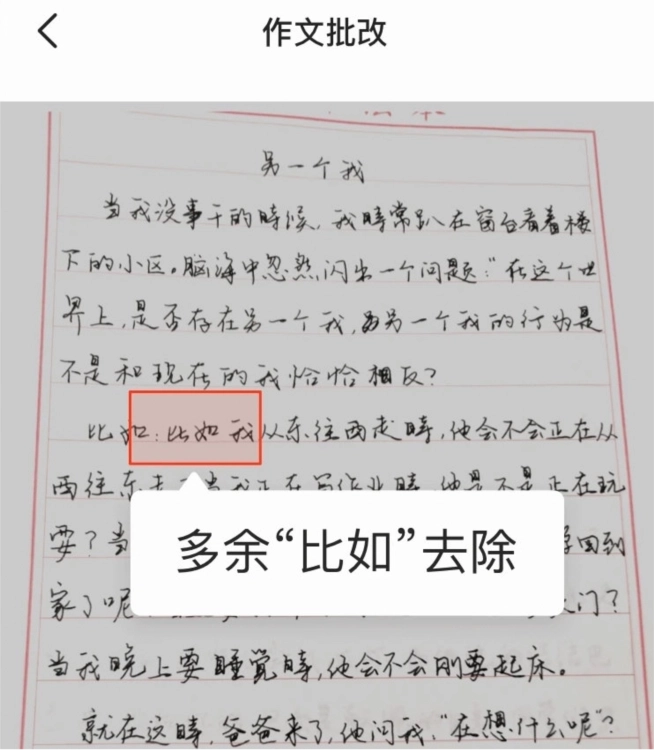 作文批改
另一个我
当我没事干的時候,我時常趴在窗台看着楼
下的小区。脑海中忽然闪出一个问题:“在这个世
界上,是否存在另一个我,而另一个我的行为是
不是和现在的我恰恰相反?
比如:比如我从东往西走時,他会不会正在从
西往东走?当我正在写作业時,他是不是正在玩
耍?当
多余“比如”去除
学回到
家了呢
大门?
当我晚上要睡觉時,他会不会刚要起床。
就在这時,爸爸来了,他问我,“在想什么呢”?